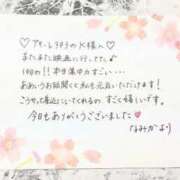 ♡アモーレ303のK様へ♡
またまた映画に行ってた♪
190分!!本当集中力すごい…
ああいうお話聞くと私も元気いただけます!
こうやって身近にいてくれるの すごく嬉しいです。
今日もありがとうございました♥
なみかより